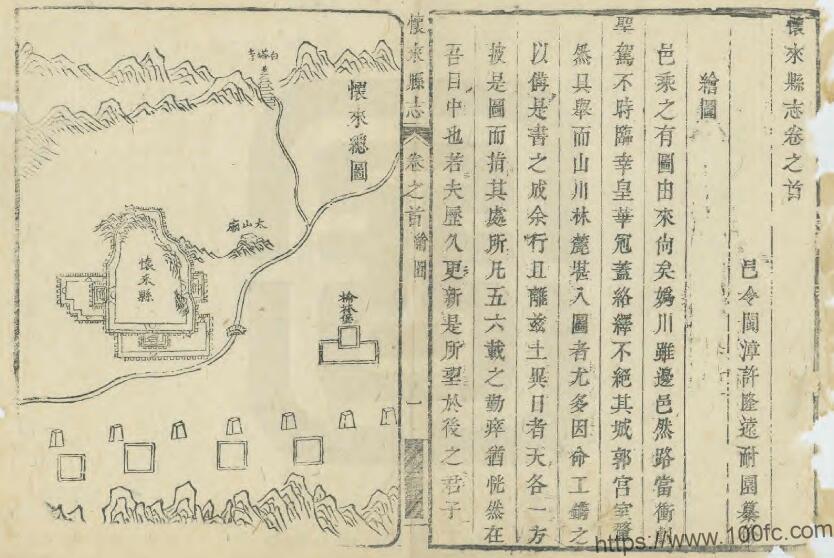 懷來縣志卷之首
邑令閩漳許隆遠耐園纂
繪圖
邑乘之有圖由來尚矣媯川雖邊邑然路當衝
聖駕不時臨幸皇華冠蓋絡繹不絕其城郭宮室
然具舉而山川林麓堪入圖者尤多因命工鐫之
以備是書之成余行且離茲土異日者天各一方
披是圖而指其處所凡五六載之勤瘁猶恍然在
吾目中也若夫歷久更新是所望於後之君子
懷來縣志
卷之首
繪圖
一
懷來總圖
白塔寺
太山廟
懷來縣
榆林堡
https://www.100fc.com